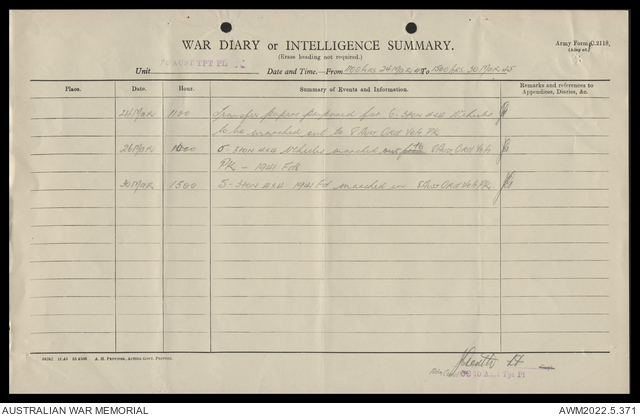 WAR DIARY or INTELLIGENCE SUMMARY.
(Erase heading not required.)
Army Form C.2118.
(Adapted).
Unit 10 AUST TPT PL Date and Time.—From 1100 hrs 24 MAR 45 To 1500 hrs 30 MAR 45
Place. Date. Hour. Summary of Events and Information. Remarks and references to Appendices, Diaries, &c.
24 MAR 1100 Transfer papers prepared for 6 - 3TON 4x4 Vehicles
to be marched out to 8 Aust ORD Veh PK
26 MAR 1600 3TON 4x4 Vehicles marched out 8 Aust ORD Veh
PK - 1941 Fds
30 MAR 1500 5 - 3TON 4x4 1941 Fd marched in 8 Aust ORD Veh PK
A. H. Pettifer, Acting Govt. Printer.
Lt
10 Aust Tpt Pl
AUSTRALIAN WAR MEMORIAL AWM2022.5.371